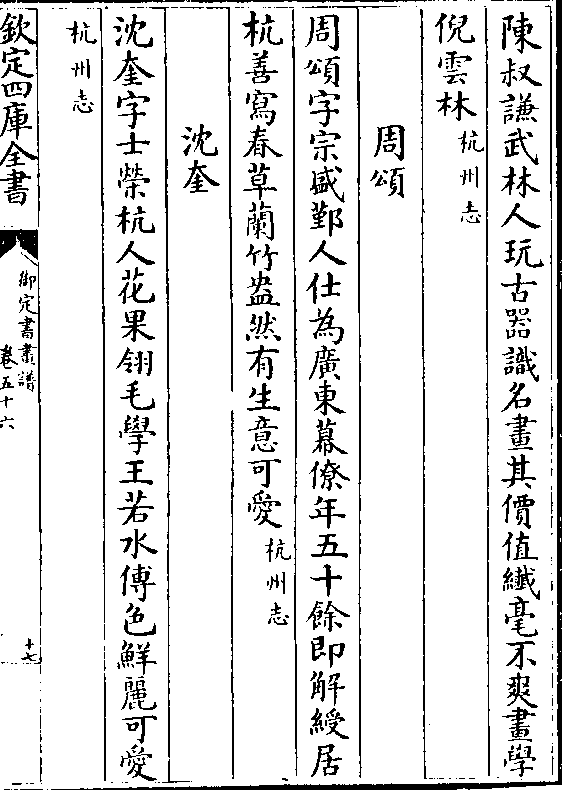 陳叔謙武林人玩古器識名畫其價值纎毫不爽畫學
倪雲林杭州志
周頌
周頌字宗盛鄞人仕為廣東幕僚年五十餘即解綬居
杭善寫春草蘭竹盎然有生意可愛杭州志
沈奎
沈奎字士榮杭人花果翎毛學王若水傅色鮮麗可愛
杭州志
欽定四庫全書
御定書畫譜
卷五十六
十七